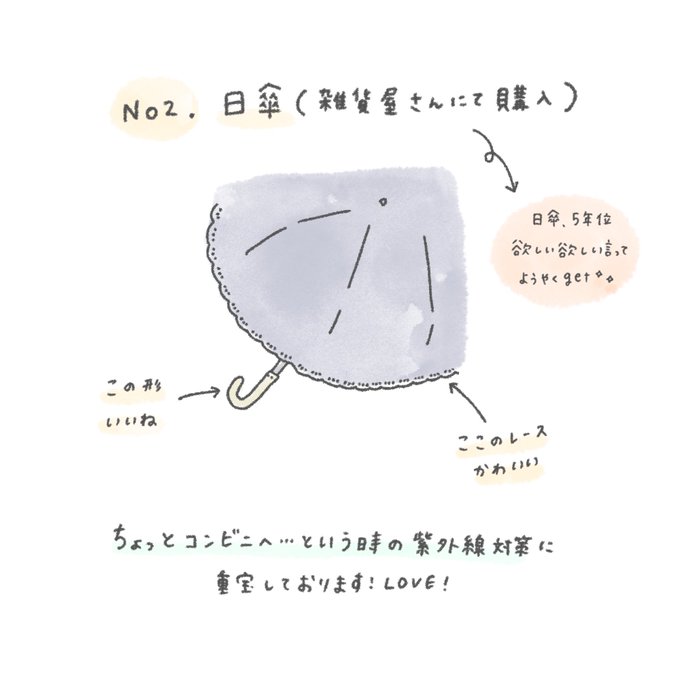 NO2. 日傘(雑貨屋さんにて購入)
日傘、5年位
欲しい欲しい言って
ようやくget
この形
いいね
ここのレース
かわいい
ちょっとコンビニへ…という時の紫外線対策に
重宝しております!LOVE!